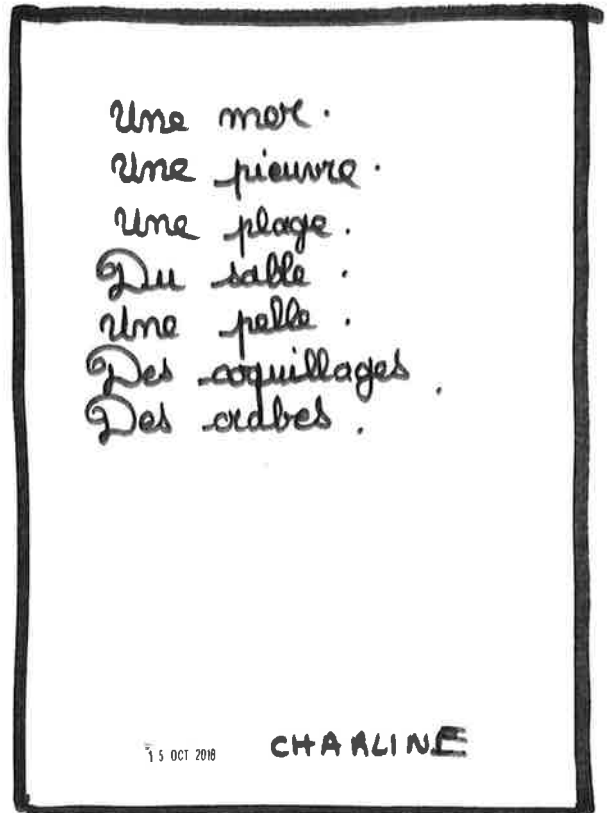 Une mer.
Une pieuvre.
Une plage.
Du sable.
Une pelle.
Des coquillages.
Des crabes.
15 OCT 2018 CHARLINE